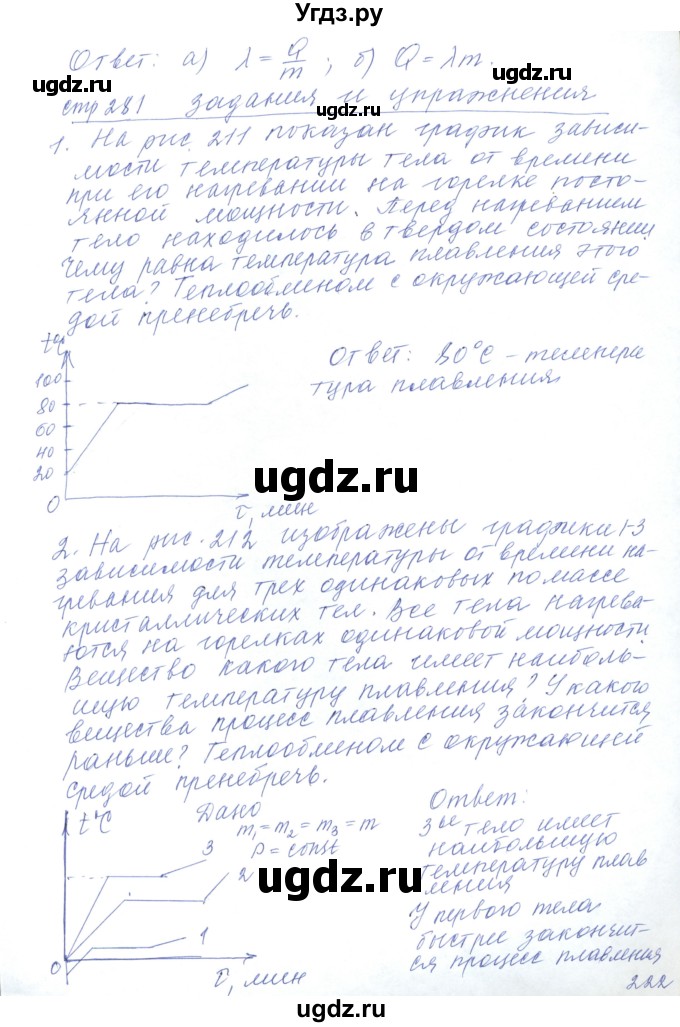 Угдз.ру
Ответ: а) λ = Q/m ; б) Q = λm.
стр 281 задания и упражнения
1. На рис. 211 показан график зависи-
мости температуры тела от времени
при его нагревании на горелке посто-
янной мощности. Перед нагреванием
тело находилось в твердом состоянии
Чему равна температура плавления этого
тела? Теплообменом с окружающей сре-
дой пренебречь.
t°C
100
80
60
40
20
0
τ, мин
Ответ: 80°C – темпера
тура плавления
ugdz.ru
ugdz.ru
2. На рис. 212 изображены графики 1-3
зависимости температуры от времени на-
гревания для трех одинаковых по массе
кристаллических тел. Все тела нагрева-
ются на горелках одинаковой мощности
Вещество какого тела имеет наиболь-
шую температуру плавления? У какого
вещества процесс плавления закончится
раньше? Теплообменом с окружающей
средой пренебречь.
ugdz.ru
ugdz.ru
t°C
3
2
1
0
τ, мин
Дано
m₁ = m₂ = m₃ = m
P = const
Ответ:
3ье тело имеет
наибольшую
температуру плав
ления
У первого тела
быстрее закончит-
ся процесс плавления
ugdz.ru
ugdz.ru
222
ugdz.ru